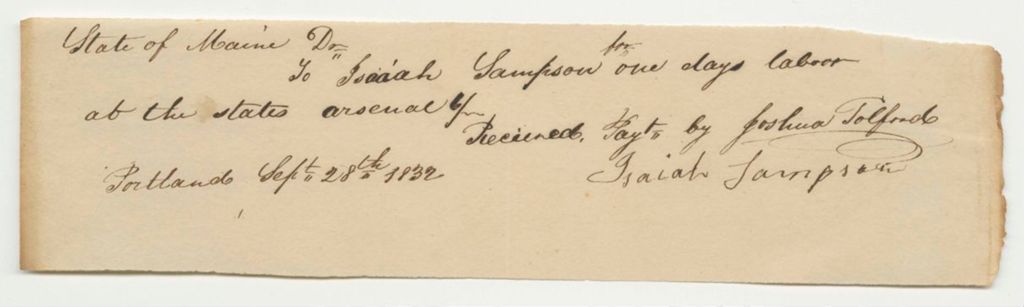 State of Maine Dr
To Isaiah Sampson for one days labour
at the states arsenal 6/
Recieved Payt by Joshua Tolford
Portland Sept 28th 1832 Isaiah Sampson